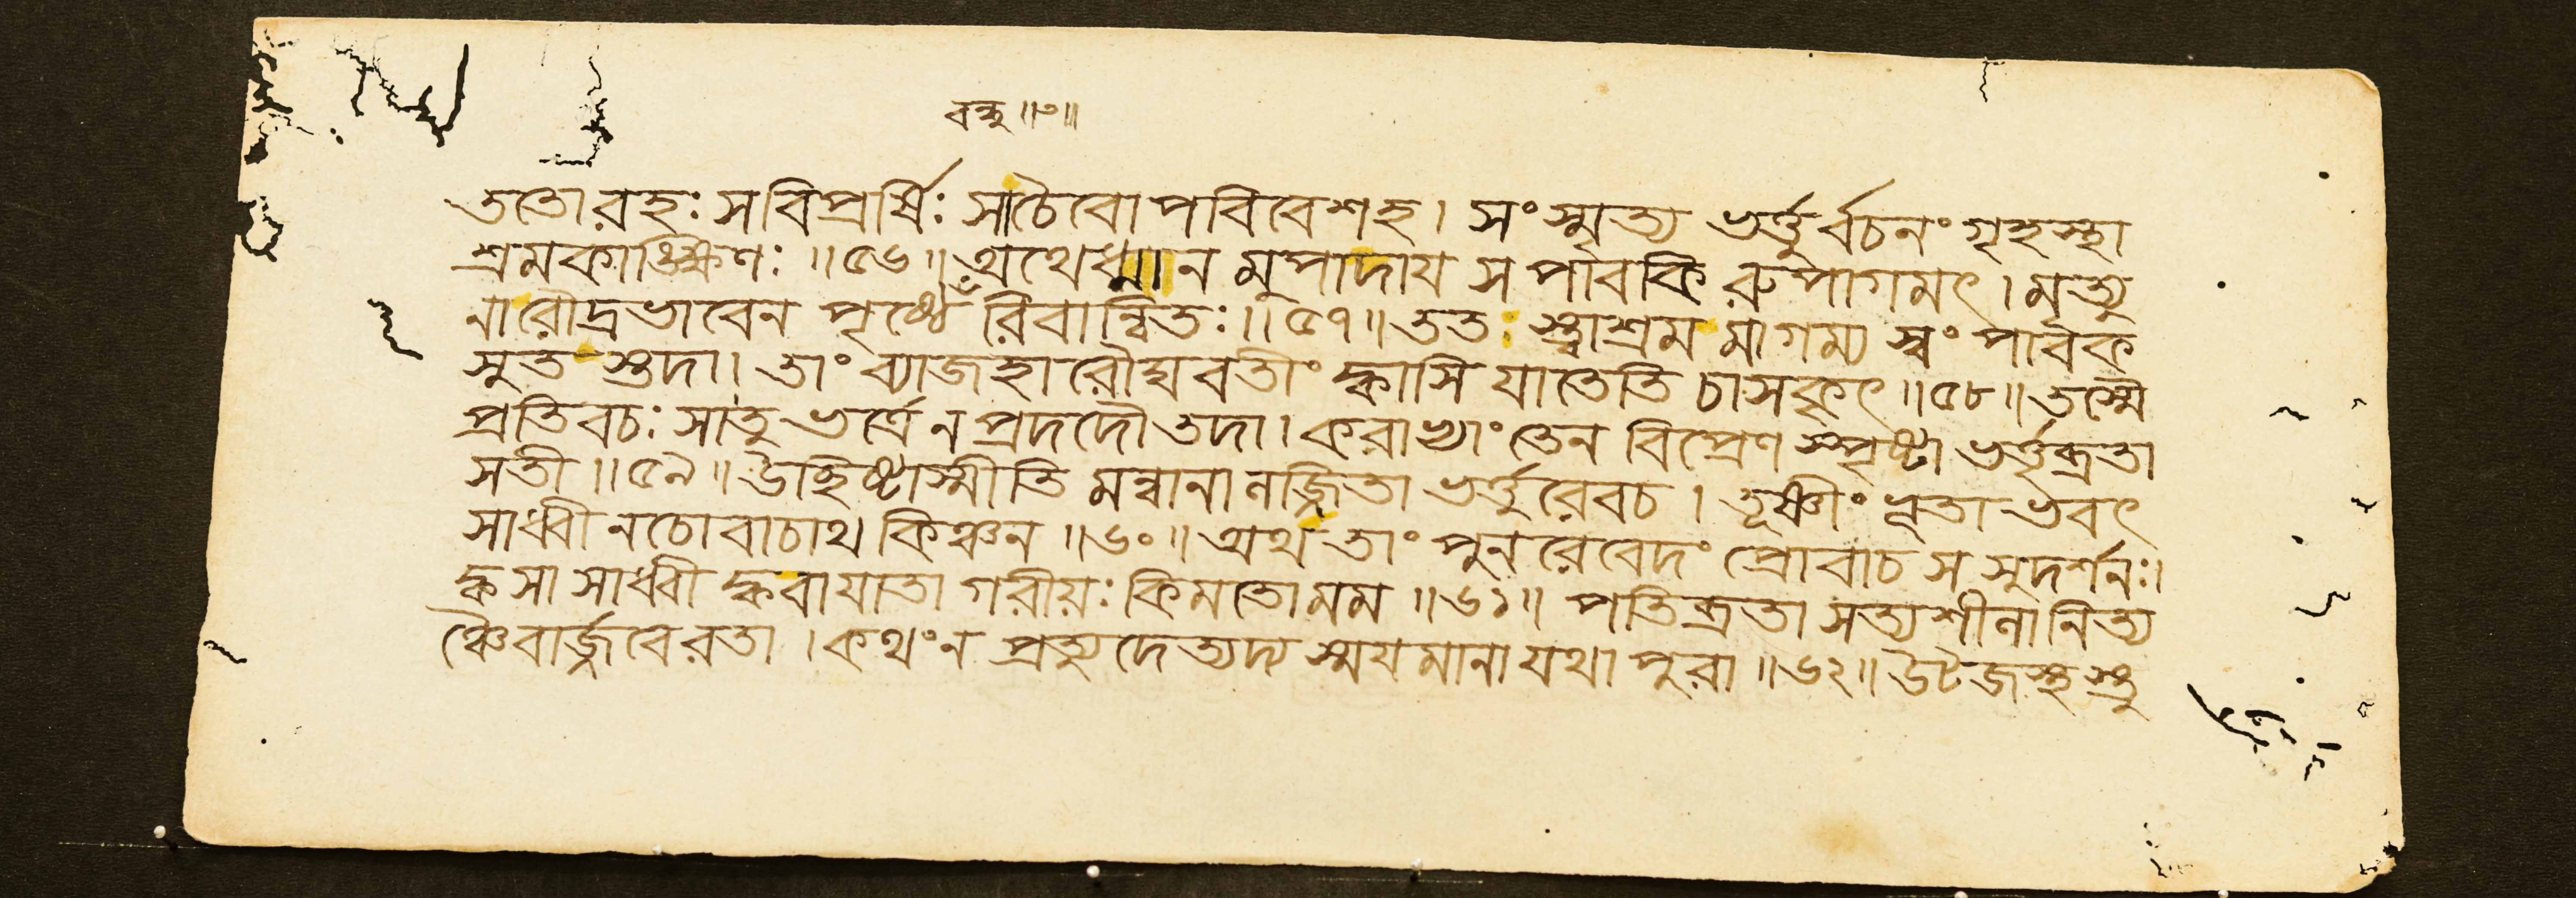 বন্ধু॥০॥
ততো রহঃ স বিপ্রর্ষিঃ সা চৈবোপবিবেশ হ। সংস্মৃত্য ভর্ত্তুর্বচনং গৃহস্থা
শ্রমকাঙ্ক্ষিণঃ॥৫৬॥ অথেধ্মানমুপাদায় স পাবকিরুপাগমৎ। মৃত্যু
না রৌদ্রভাবেন পৃষ্ঠে রিবান্বিতঃ॥৫৭॥ ততঃ স্ত্বাশ্রমমাগম্য স্বং পাবক
সুতস্তদা। তাং ব্যাজহারৌঘবতীং ক্বাসি যাতেতি চাসকৃৎ॥৫৮॥ তস্মৈ
প্রতিবচঃ সা তু ভর্ত্রে ন প্রদদৌ তদা। করাভ্যাং তেন বিপ্রেণ স্পৃষ্টা ভর্ত্তৃব্রতা
সতী॥৫৯॥ উচ্ছিষ্টাস্মীতি মন্বানা লজ্জিতা ভর্ত্তুরেব চ। তূষ্ণীং ভূতাভবৎ
সাধ্বী ন চোবাচাথ কিঞ্চন॥৬০॥ অথ তাং পুনরেবেদং প্রোবাচ স সুদর্শনঃ।
ক্ব সা সাধ্বী ক্ব বা যাতা গরীয়ঃ কিমতো মম॥৬১॥ পতিব্রতা সত্যশীলা নিত্য
ঞ্চৈবার্জ্জবে রতা। কথং ন প্রত্যুদেত্যদ্য স্ময়মানা যথা পুরা॥৬২॥ উটজস্থস্তু